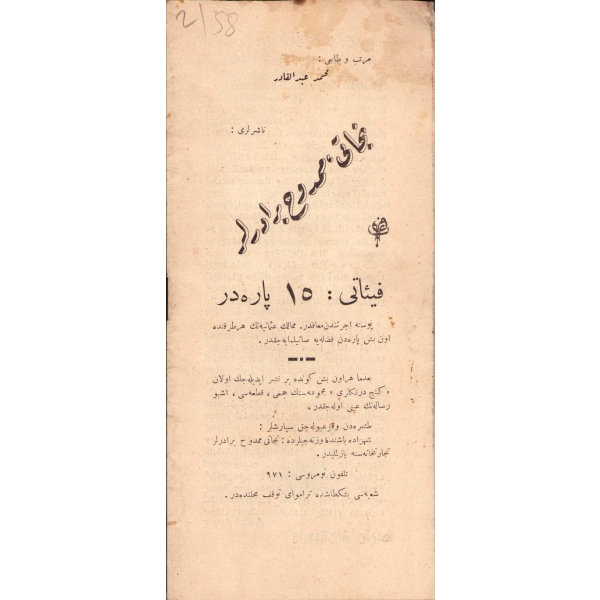 2/58
مرتب و طابعی :
محمد عبدالقادر
ناشرلری :
نجاتی، ممدوح برادرلر
فیئاتی : ١٥ پاره‌در
پوسته اجرتندن معافدر. ممالك عثمانیه‌نك هر طرفنده
اون بش پاره‌دن فضله‌یه صاتیلمایه‌جقدر .
بعدما هر اون بش كونده بر نشر ایدیله‌جك اولان
مجموعه‌سنك حجمی ، قطعه‌سی ، اشبو
رساله‌نك عینی اوله‌جقدر.
طشره‌دن وقوعبوله‌جق سپارشلر :
شهزاده باشنده وزنه‌جیلرده : نجاتی ممدوح برادرلر
تجارتخانه‌سنه یازلمالیدر.
تلفون نومروسی : ٩٧١
شعبه‌سی بشكطاشده تراموای توقف محلنده‌در.